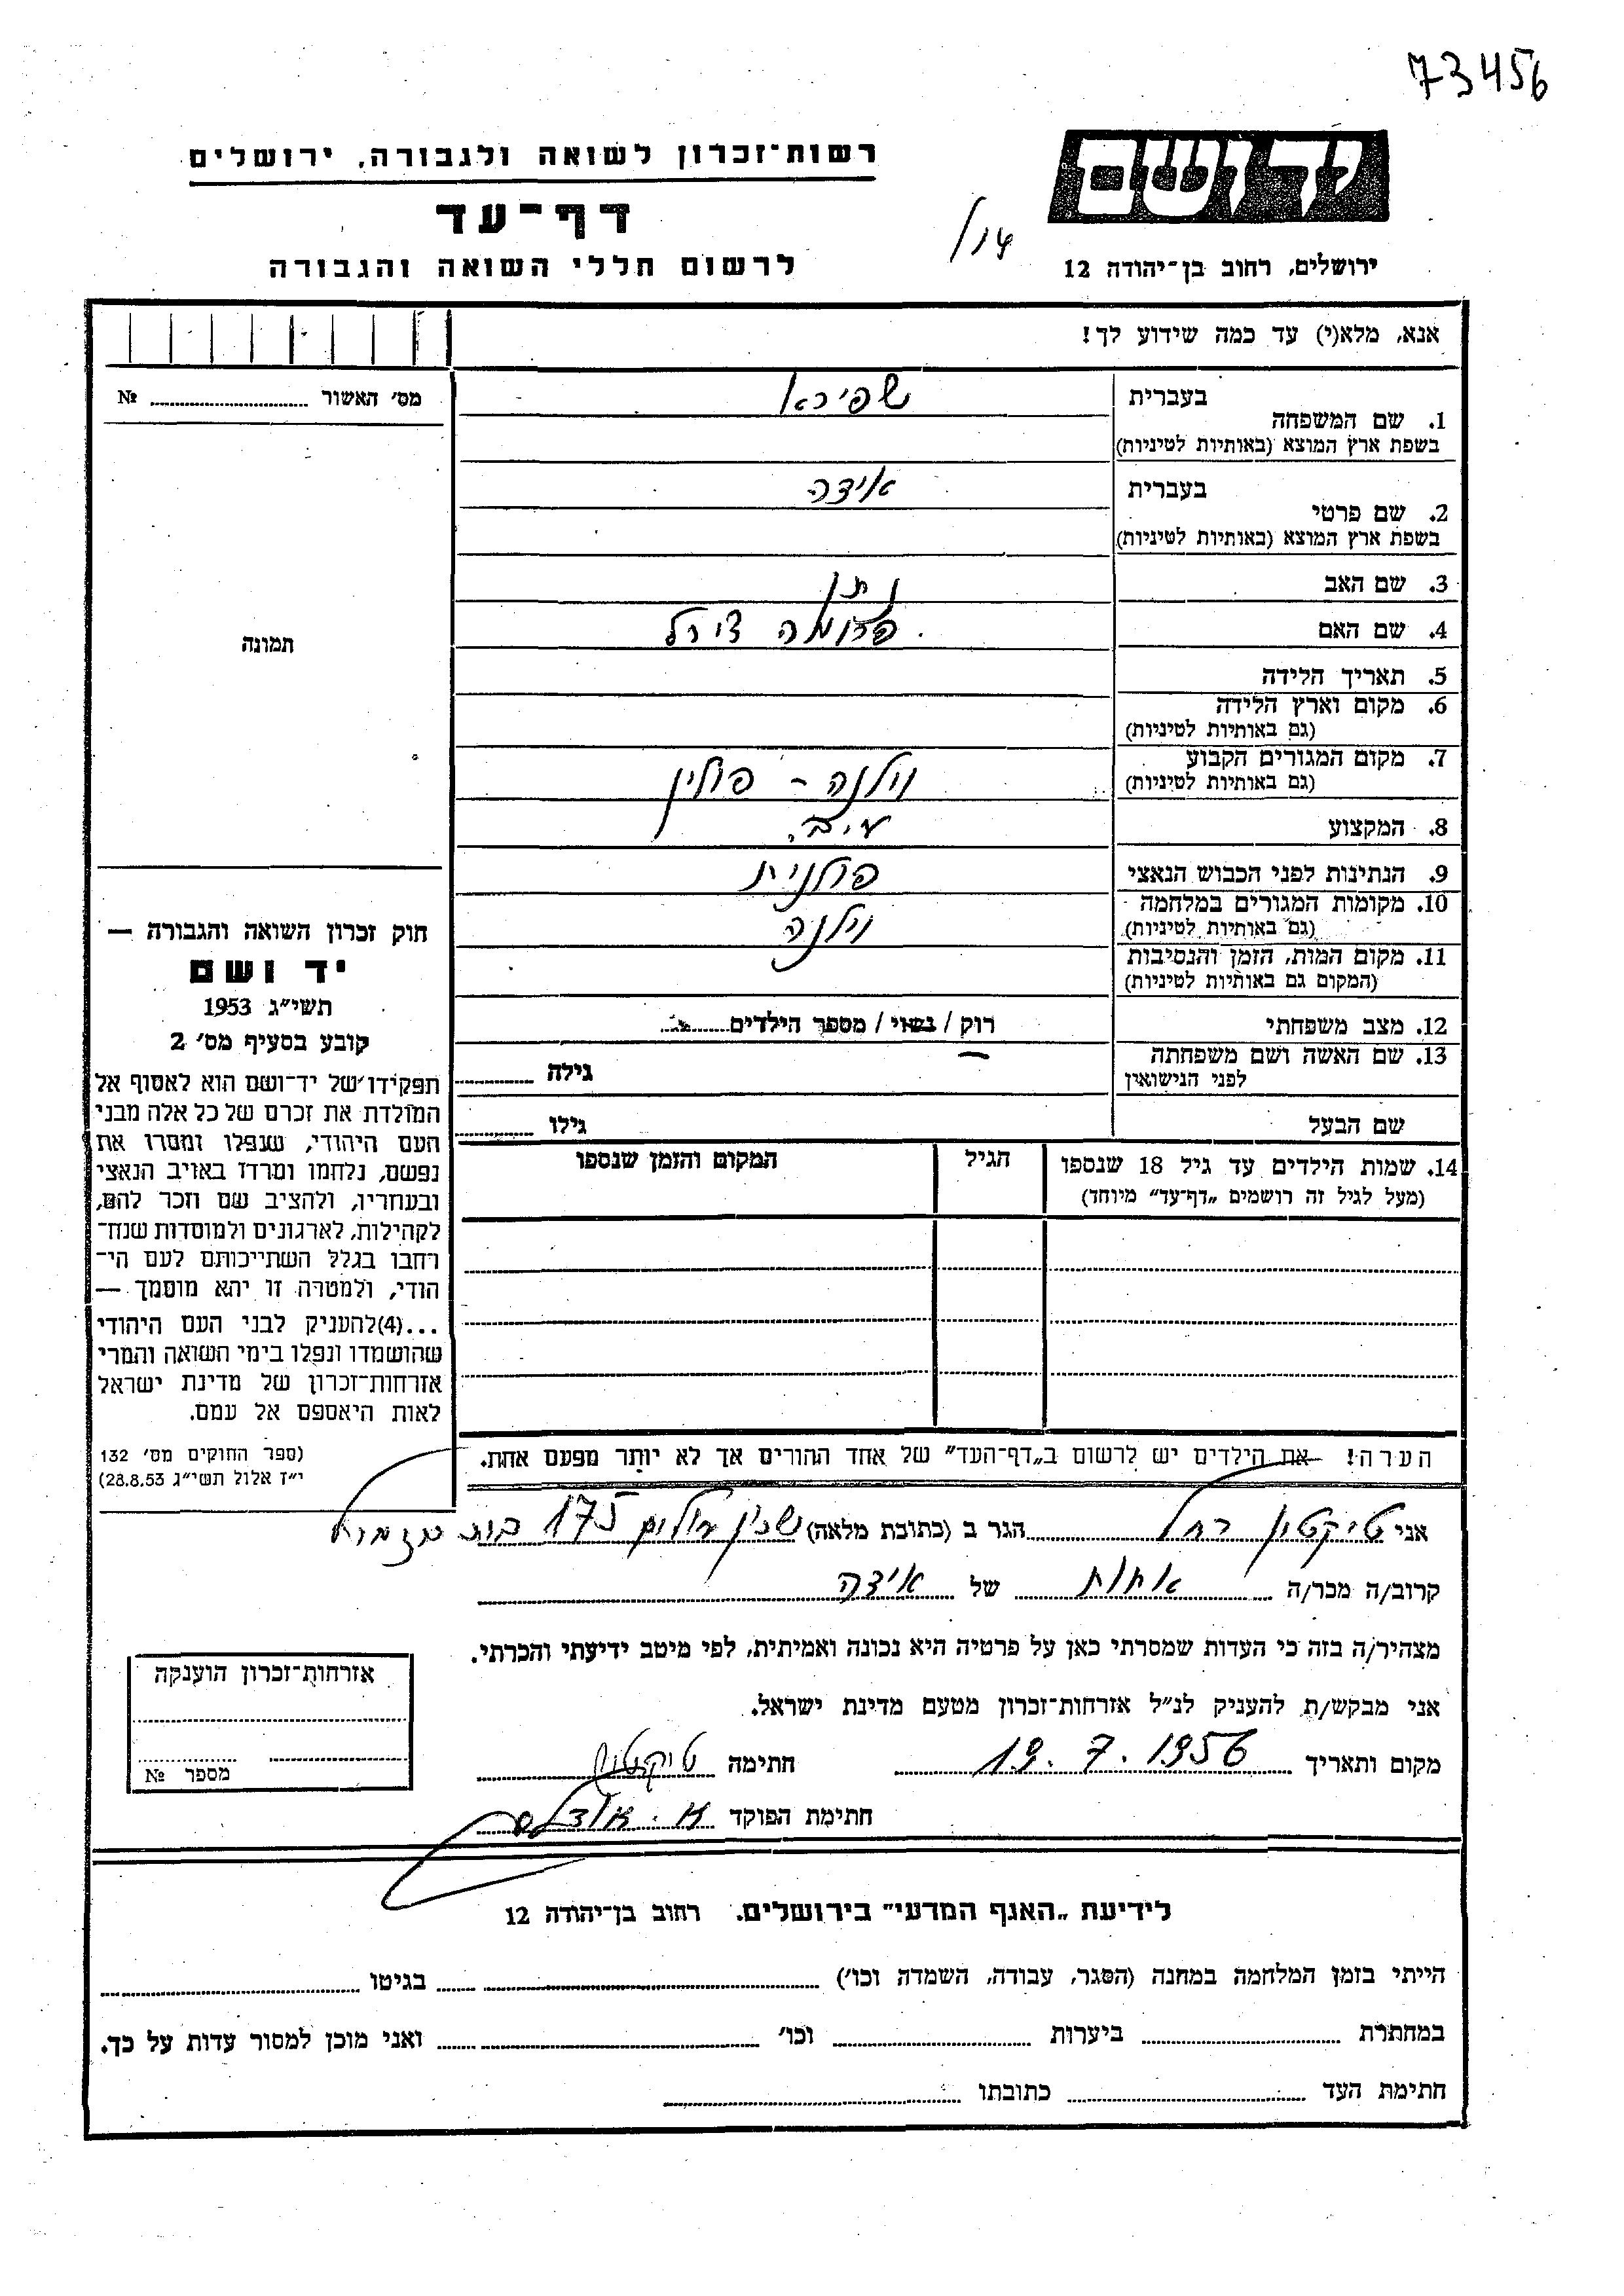 73456
יד ושם
רשות־זכרון לשואה ולגבורה, ירושלים
דף־עד
לרשום חללי השואה והגבורה
ירושלים, רחוב בן־יהודה 12
אנא, מלא(י) עד כמה שידוע לך!
מס׳ האשור № 
1. שם המשפחה בעברית שפירא
בשפת ארץ המוצא (באותיות לטיניות)
2. שם פרטי בעברית אידה
בשפת ארץ המוצא (באותיות לטיניות)
3. שם האב נתן
4. שם האם פרומה
תמונה
5. תאריך הלידה
6. מקום וארץ הלידה
(גם באותיות לטיניות)
7. מקום המגורים הקבוע וילנה - פולין
(גם באותיות לטיניות)
8. המקצוע
9. הנתינות לפני הכבוש הנאצי פולנית
10. מקומות המגורים במלחמה וילנה
(גם באותיות לטיניות)
11. מקום המות, הזמן והנסיבות
(המקום גם באותיות לטיניות)
12. מצב משפחתי רוק / נשוי / מספר הילדים
13. שם האשה ושם משפחתה
לפני הנישואין גילה
שם הבעל גילו
14. שמות הילדים עד גיל 18 שנספו
(מעל לגיל זה רושמים „דף־עד״ מיוחד)
הגיל
המקום והזמן שנספו
חוק זכרון השואה והגבורה —
יד ושם
תשי״ג 1953
קובע בסעיף מס׳ 2
תפקידו של יד־ושם הוא לאסוף אל
המולדת את זכרם של כל אלה מבני
העם היהודי, שנפלו ומסרו את
נפשם, נלחמו ומרדו באויב הנאצי
ובעוזריו, ולהציב שם וזכר להם,
לקהילות, לארגונים ולמוסדות שנח־
רבו בגלל השתייכותם לעם הי־
הודי, ולמטרה זו יהא מוסמך —
...(4)להעניק לבני העם היהודי
שהושמדו ונפלו בימי השואה והמרי
אזרחות־זכרון של מדינת ישראל
לאות היאספם אל עמם.
(ספר החוקים מס׳ 132
י״ז אלול תשי״ג 28.8.53)
הערה! את הילדים יש לרשום ב„דף־העד״ של אחד ההורים אך לא יותר מפעם אחת.
אני טיקטין רחל הגר ב (כתובת מלאה) שכון עולים 175
קרוב/ה מכר/ה אחות של אידה
מצהיר/ה בזה כי העדות שמסרתי כאן על פרטיה היא נכונה ואמיתית, לפי מיטב ידיעתי והכרתי.
אני מבקש/ת להעניק לנ״ל אזרחות־זכרון מטעם מדינת ישראל.
מקום ותאריך 19.7.1956 חתימה טיקטין
חתימת הפוקד
אזרחות־זכרון הוענקה
מספר №
לידיעת „האגף המדעי״ בירושלים. רחוב בן־יהודה 12
הייתי בזמן המלחמה במחנה (הסגר, עבודה, השמדה וכו׳) בגיטו
במחתרת ביערות וכו׳ ואני מוכן למסור עדות על כך.
חתימת העד כתובתו